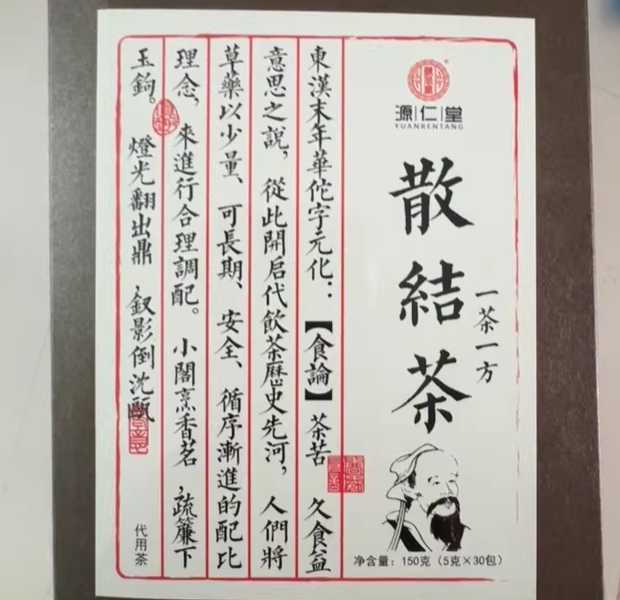 源仁堂
YUANRENTANG
散結茶
一茶一方
净含量：150克（5克×30包）
東漢末年華佗字元化：【食論】茶苦 久食益
意思之說，從此開启代飲茶歷史先河，人們將
草藥以少量、可長期、安全、循序漸進的配比
理念，來進行合理調配。小閣烹香茗，疏簾下
玉鉤。燈光翻出鼎，釵影倒沈甌
代用茶